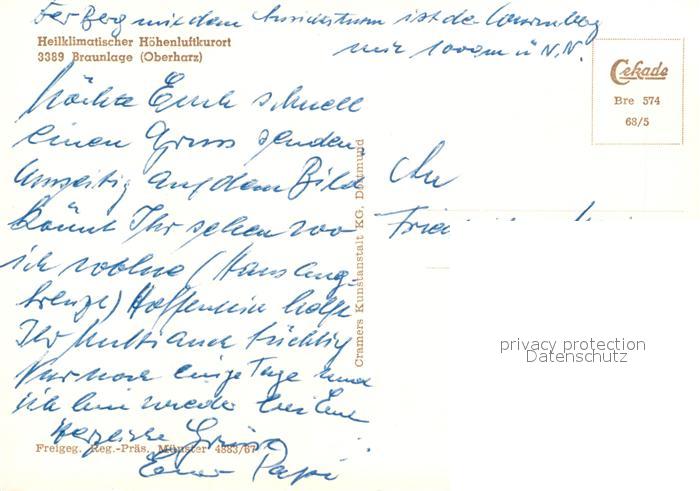 Der Berg mit dem Aussichtsturm ist der Wurmberg
mit 1000 m ü N.N.
Heilklimatischer Höhenluftkurort
3389 Braunlage (Oberharz)
Cekade
Bre 574
68/5
Möchte Euch schnell
einen Gruss senden,
auf dem Bild
könnt Ihr sehen wo
ich wohne (Haus ange-
kreuzt) Hoffentlich helft
Ihr Mutti auch tüchtig
Nur noch einige Tage und
ich bin wieder bei Euch
Herzliche Grüsse
Euer Papi
An
Cramers Kunstanstalt KG, Dortmund
Freigeg. Reg.-Präs. Münster 4883/67
privacy protection
Datenschutz